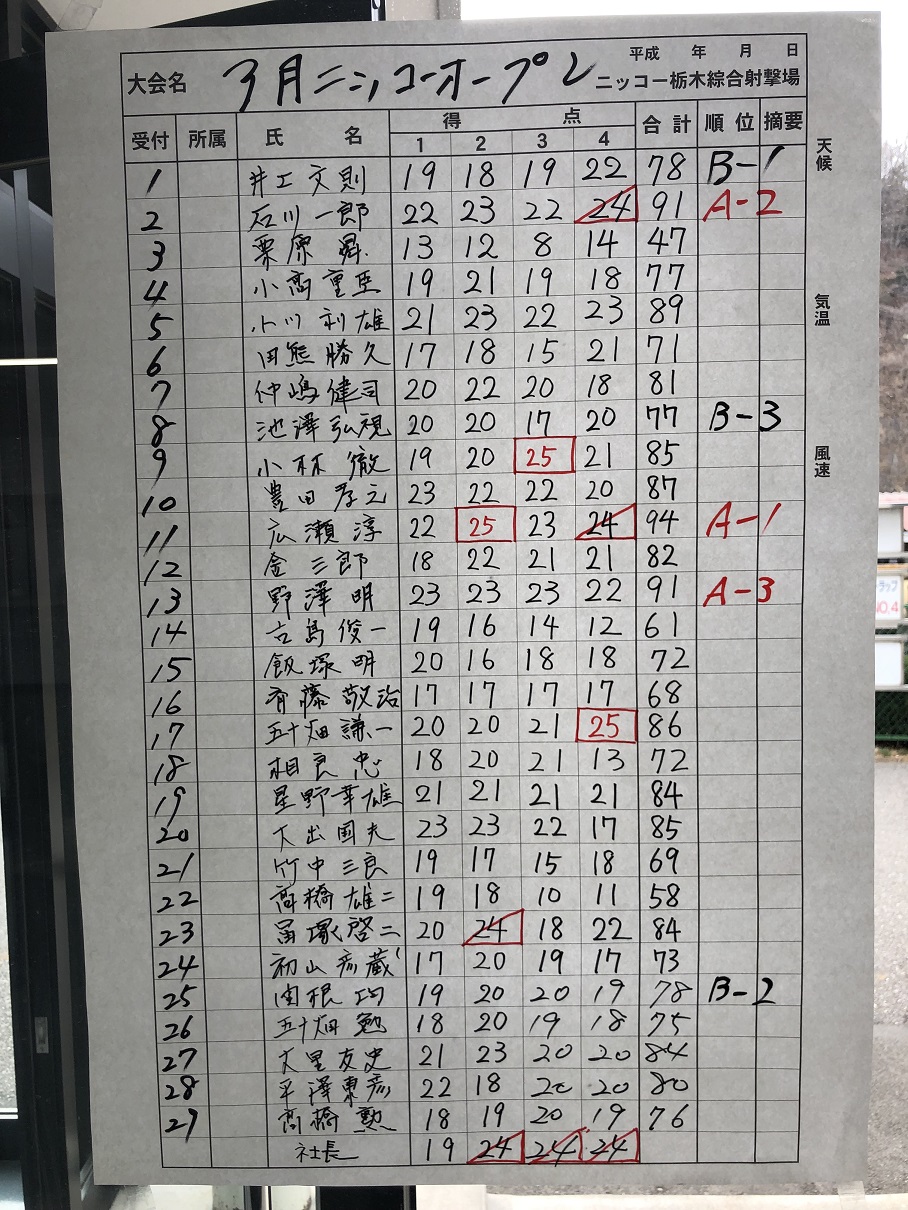 平成 年 月 日
大会名 3月ニッコーオープン ニッコー栃木綜合射撃場
受付 所属 氏名 得点 合計 順位 摘要
1 2 3 4
天候
1 井上文則 19 18 19 22 78 B-1
2 石川一郎 22 23 22 24 91 A-2
3 栗原昇 13 12 8 14 47
4 小高重臣 19 21 19 18 77
気温
5 小川利雄 21 23 22 23 89
6 田熊勝久 17 18 15 21 71
7 仲嶋健司 20 22 20 18 81
8 池澤弘視 20 20 17 20 77 B-3
風速
9 小林徹 19 20 25 21 85
10 豊田孝元 23 22 22 20 87
11 広瀬淳 22 25 23 24 94 A-1
12 金三郎 18 22 21 21 82
13 野澤明 23 23 23 22 91 A-3
14 古島俊一 19 16 14 12 61
15 飯塚明 20 16 18 18 72
16 斉藤敬治 17 17 17 17 68
17 五十畑謙一 20 20 21 25 86
18 相良忠 18 20 21 13 72
19 星野幸雄 21 21 21 21 84
20 大出国夫 23 23 22 17 85
21 竹中三良 19 17 15 18 69
22 高橋雄二 19 18 10 11 58
23 冨塚啓二 20 24 18 22 84
24 初山彦蔵 17 20 19 17 73
25 関根均 19 20 20 19 78 B-2
26 五十畑勉 18 20 19 18 75
27 大里友史 21 23 20 20 84
28 平澤東彦 22 18 20 20 80
29 高橋勲 18 19 20 19 76
社長 19 24 24 24
NO.4